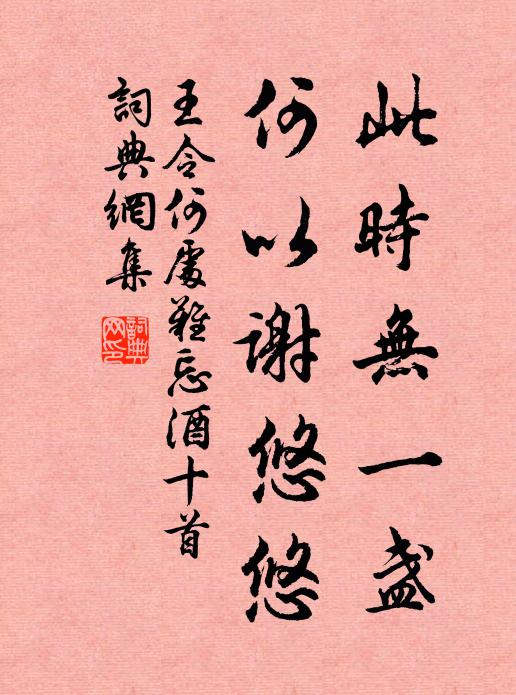 此時無一盞
何以謝悠悠
王令何處難忘酒十首
詞典網集
詞典網印